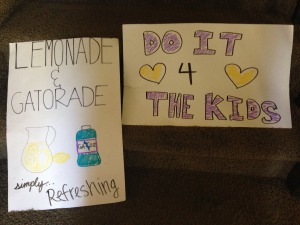 LEMONADE
&
GATORADE
simply...
Refreshing
DO IT
4
THE KIDS